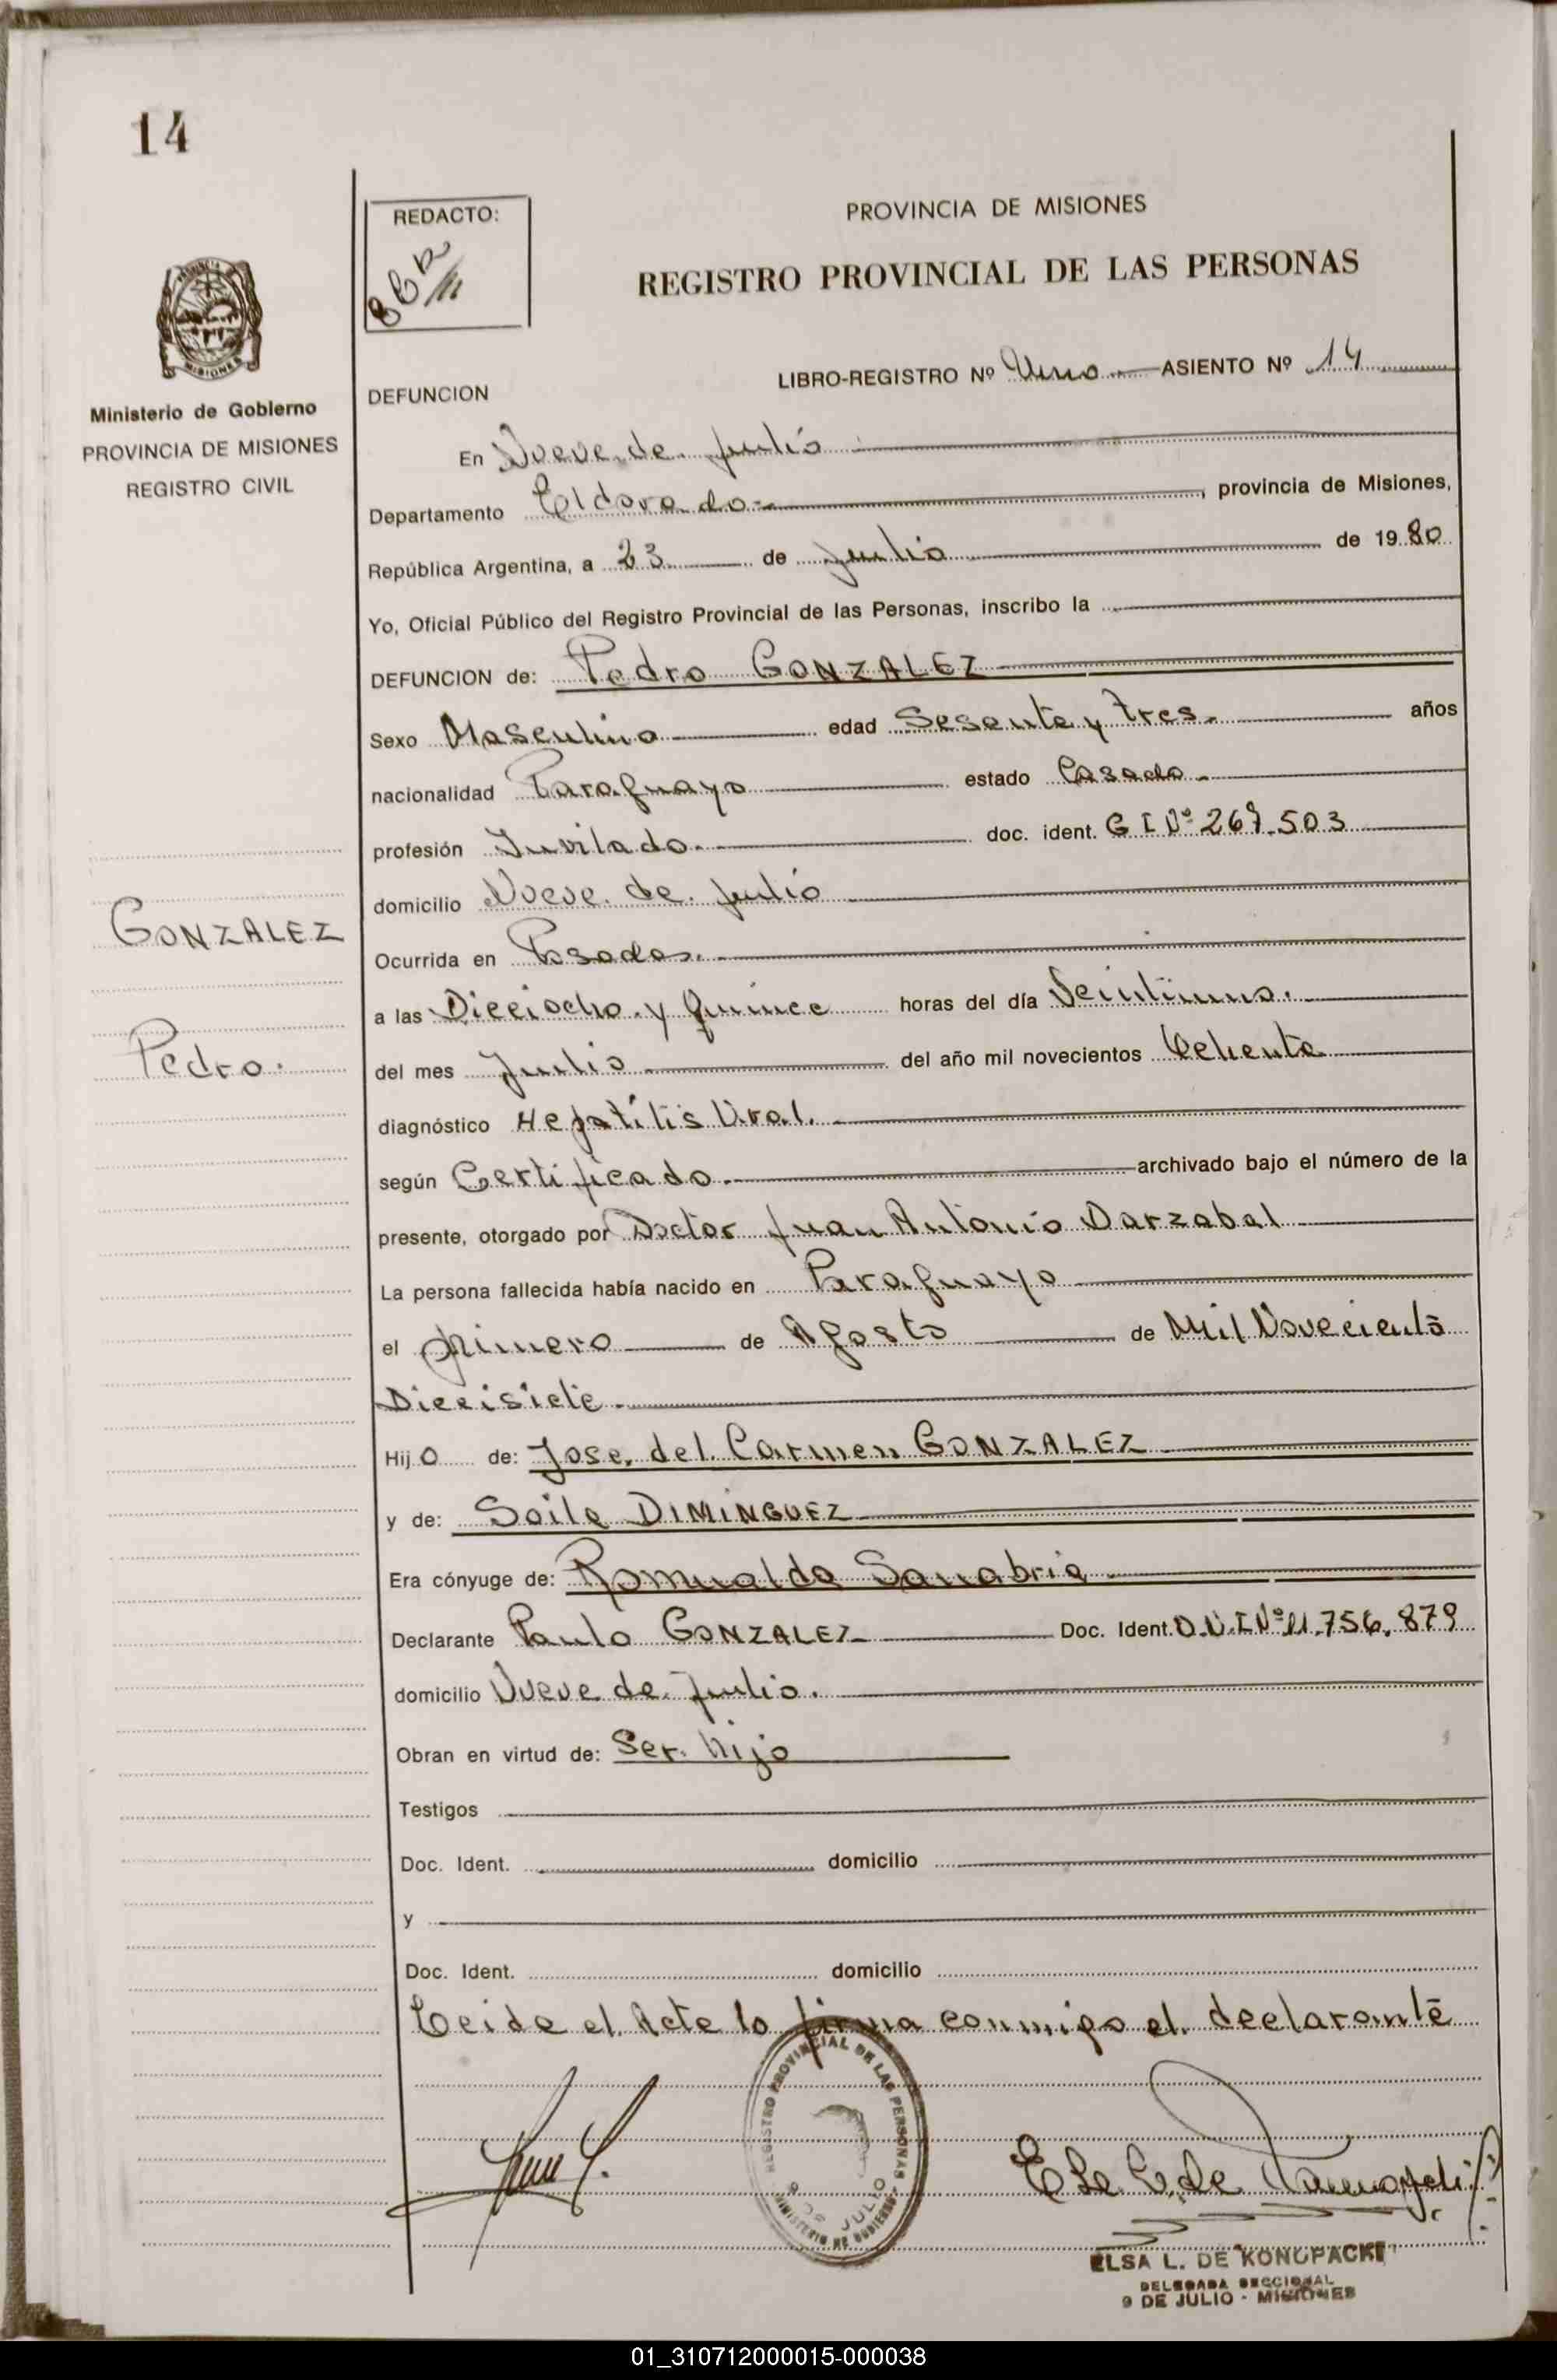 14
REDACTO:
PROVINCIA DE MISIONES
REGISTRO PROVINCIAL DE LAS PERSONAS
Ministerio de Gobierno
PROVINCIA DE MISIONES
REGISTRO CIVIL
DEFUNCION LIBRO-REGISTRO Nº Uno ASIENTO Nº 14
En Nueve de Julio
Departamento Eldorado, provincia de Misiones,
República Argentina, a 23 de Julio de 1980
Yo, Oficial Público del Registro Provincial de las Personas, inscribo la
DEFUNCION de: Pedro GONZALEZ
Sexo Masculino edad Sesenta y tres. años
nacionalidad Paraguaya estado Casado
profesión Juvilado. doc. ident. C I Nº 267.503
domicilio Nueve de Julio
GONZALEZ
Ocurrida en Posadas.
a las Dieciocho y Quince horas del día Veintiuno.
Pedro.
del mes Julio del año mil novecientos Ochenta
diagnóstico Hepatitis Viral.
según Certificado archivado bajo el número de la
presente, otorgado por Doctor Juan Antonio Darzabal
La persona fallecida había nacido en Paraguayo
el primero de Agosto de Mil Novecientos
Diecisiete.
Hijo de: Jose del Carmen GONZALEZ
y de: Soila DIMINGUEZ
Era cónyuge de: Romualda Sanabria
Declarante Paulo GONZALEZ Doc. Ident. D.N.I Nº 11.756.879
domicilio Nueve de Julio.
Obran en virtud de: Ser hijo
Testigos
Doc. Ident. domicilio
y
Doc. Ident. domicilio
Leida el Acta lo firma conmigo el declarante
REGISTRO PROVINCIAL DE LAS PERSONAS
9 DE JULIO
MINISTERIO DE GOBIERNO
ELSA L. DE KONOPACKI
DELEGADA SECCIONAL
9 DE JULIO - MISIONES
01_310712000015-000038